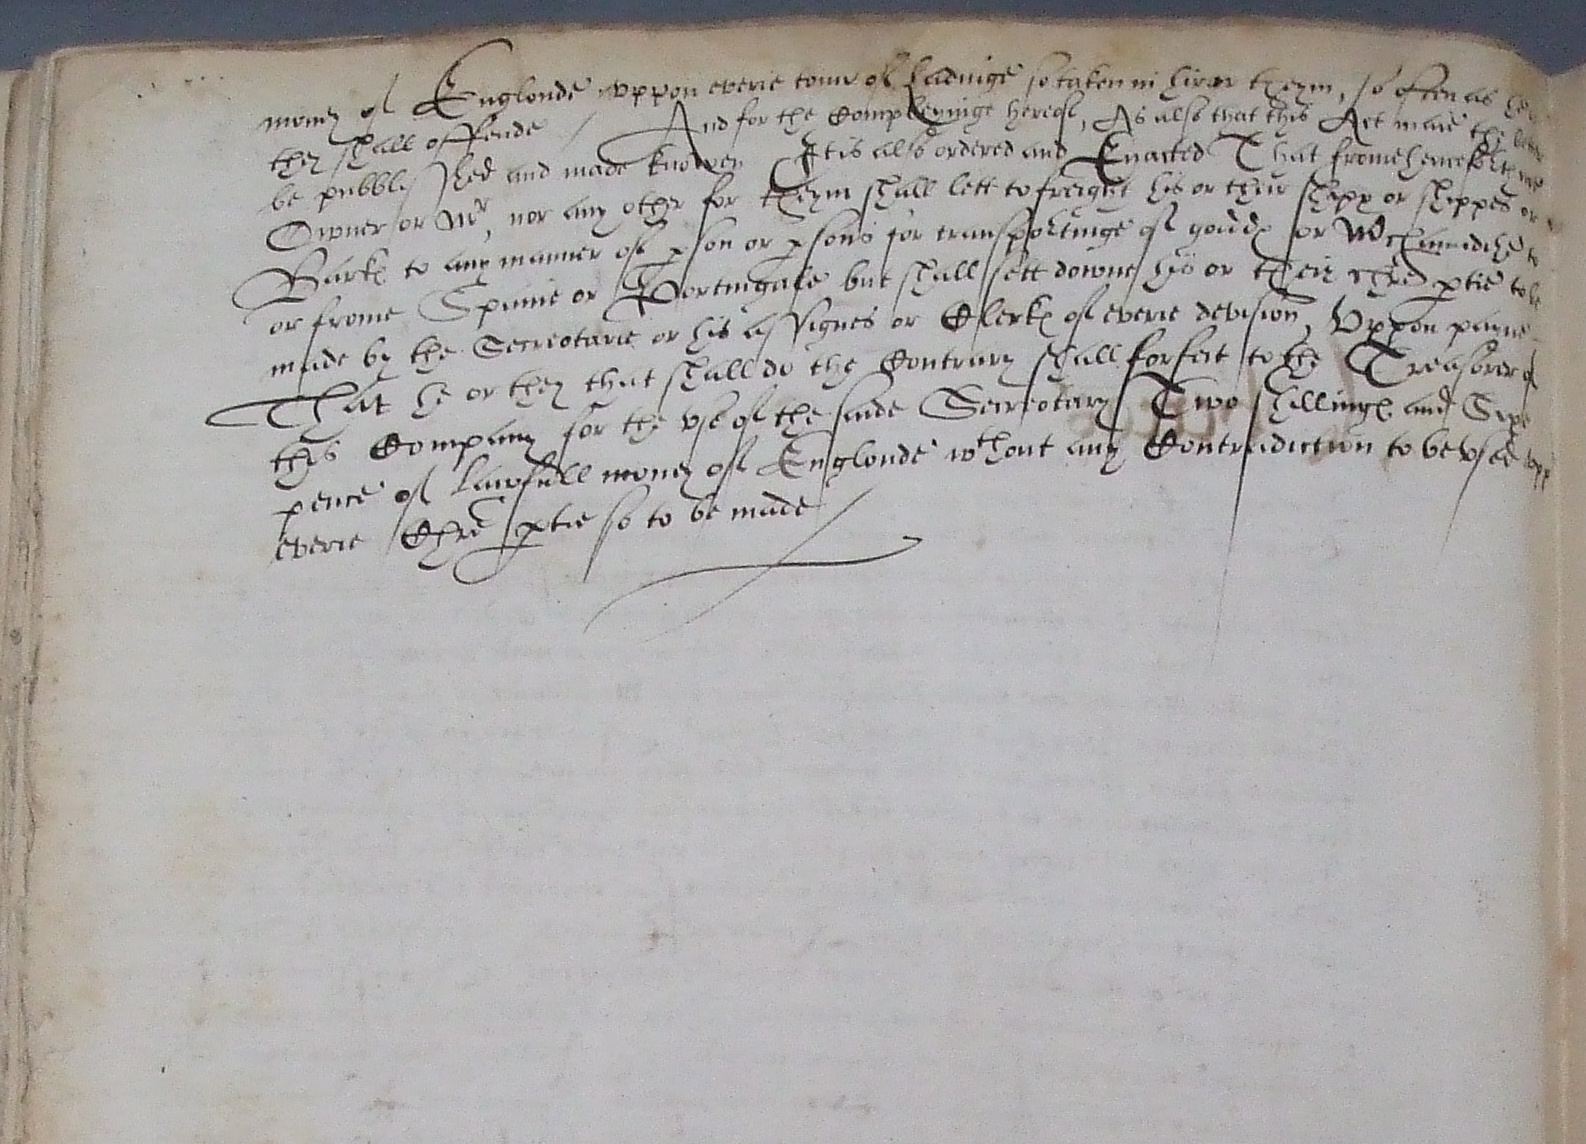 money of Englonde vppon everie tonne of Ladinge so taken in hier or theym, so often as he or
they shall offende / And for the compleyinge hereof, As also that this Act maie the better
be publisshed and made knowen It is also ordered and Enacted That frome hencefoorth no
Owner or Mr, nor any other for theym shall lett to freight his or their shipp or shippes or
Barkes to any manner of pson or psons for transportinge of goodes or Mrchaundize to
or frome Spaine or Portingale but shall sett downe his or their chre ptie to be
made by the Secreotarie or his assignes or Clerkes of everie devision, Vppon payne
That he or they that shall do the Contrary shall forfeit to the Treasorer of
this Company for the vse of the saide Secreotary Two shillinges and Sixe
pence of lawfull money of Englonde wthout any Contradiction to be vsed vpp
everie Chre ptie so to be made /